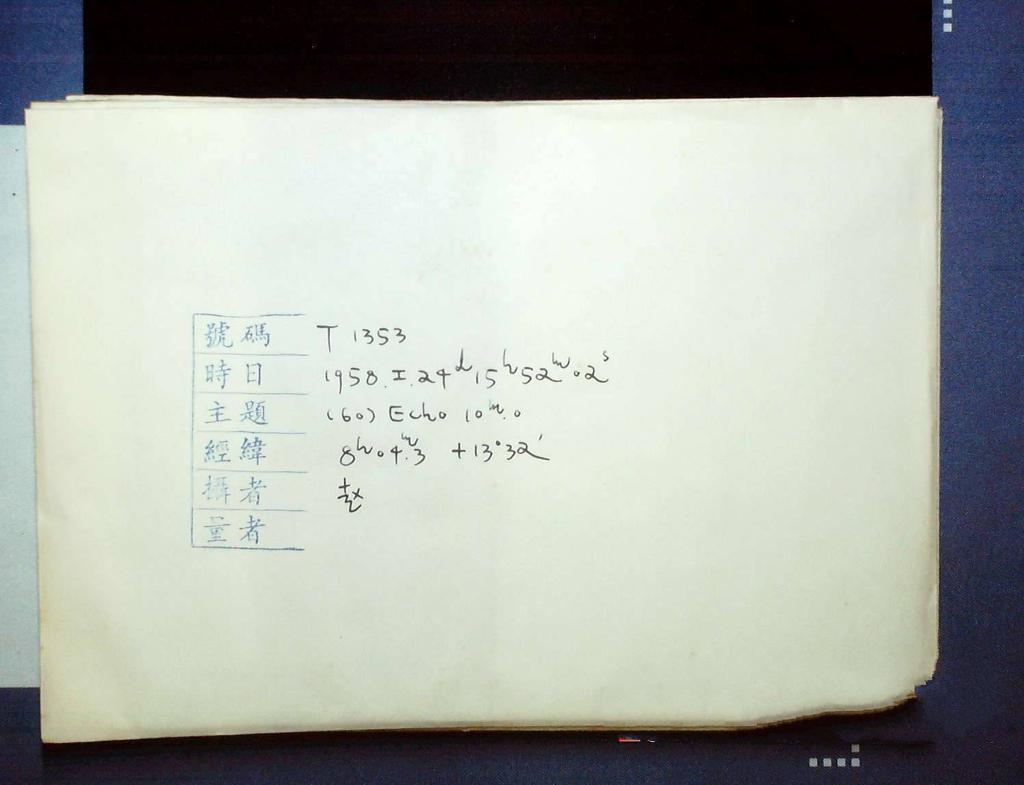 號碼 T 1353
時日 1958.I.24ᵈ15ʰ52ᵐ02ˢ
主題 (60) Echo 10ᵐ.0
經緯 8ʰ04ᵐ.3 +13°32′
攝者 赵
量者